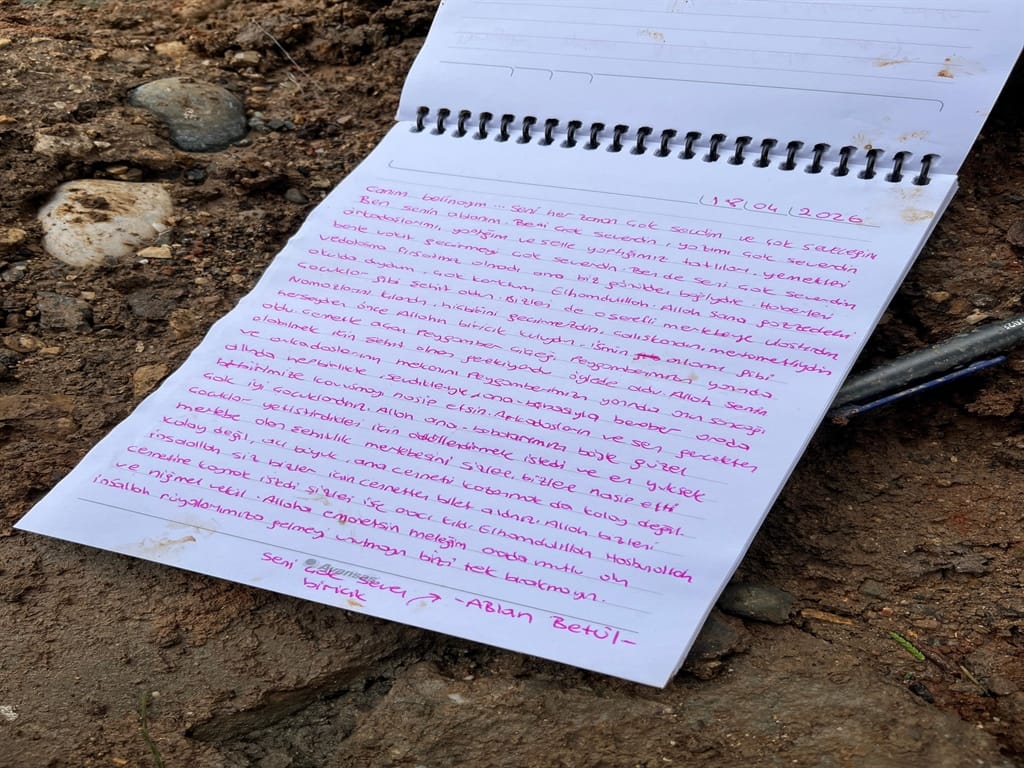 18/04/2026
Canım belinayım... Seni her zaman çok sevdim ve çok seveceğim
Ben senin ablanım. Beni çok severdin, yazımı çok severdin
arkadaşlarımı, yaptığım ve senle yaptığımız tatlıları, yemekleri
benle vakit geçirmeyi çok severdin. Ben de seni çok severdim
vedalaşma fırsatımız olmadı ama biz gönülden bağlıydık. Haberleri
okulda duydum, çok korktum. Elhamdulillah. Allah sana gazzedeki
çocuklar gibi şehit oldun. Bizleri de o şerefli mertebeye ulaştırdın
Namazlarını kılardın, hiçbirini geçirmezdin, çalışkandın, merhametliydin
herşeyden önce Allahın biricik kuluydun. ismin anlamı gibi
oldu. Cennette açan Peygamber çiçeği Peygamberimizin yanında
olabilmek için şehit olman gerekiyordu öylede oldu. Allah senin
ve arkadaşlarının mekanını Peygamberimizin yanında onun sancağı
altında hep birlikte, sevdikleriyle, ana-babasıyla beraber orada
birbirimize kavuşmayı nasip etsin. Arkadaşların ve sen gerçekten
çok iyi çocuklardınız. Allah ana-babalarımızı böyle güzel
çocuklar yetiştirdikleri için ödüllendirmek istedi ve en yüksek
mertebe olan şehitlik mertebesini sizlere, bizlere nasip etti
kolay değil, acı büyük, ama cenneti kazanmak da kolay değil.
inşaallah siz bizler için cennetten bilet aldınız. Allah bizleri
cennetine koymak istedi sizleri ise aracı kıldı. Elhamdulillah Hasbunallah
ve niğmel vekil. Allaha emanetsin meleğim orada mutlu ol
inşallah rüyalarımıza gelmeyi unutmayın bizi tek bırakmayın.
Seni çok seven → -ABlan Betül-
biricik